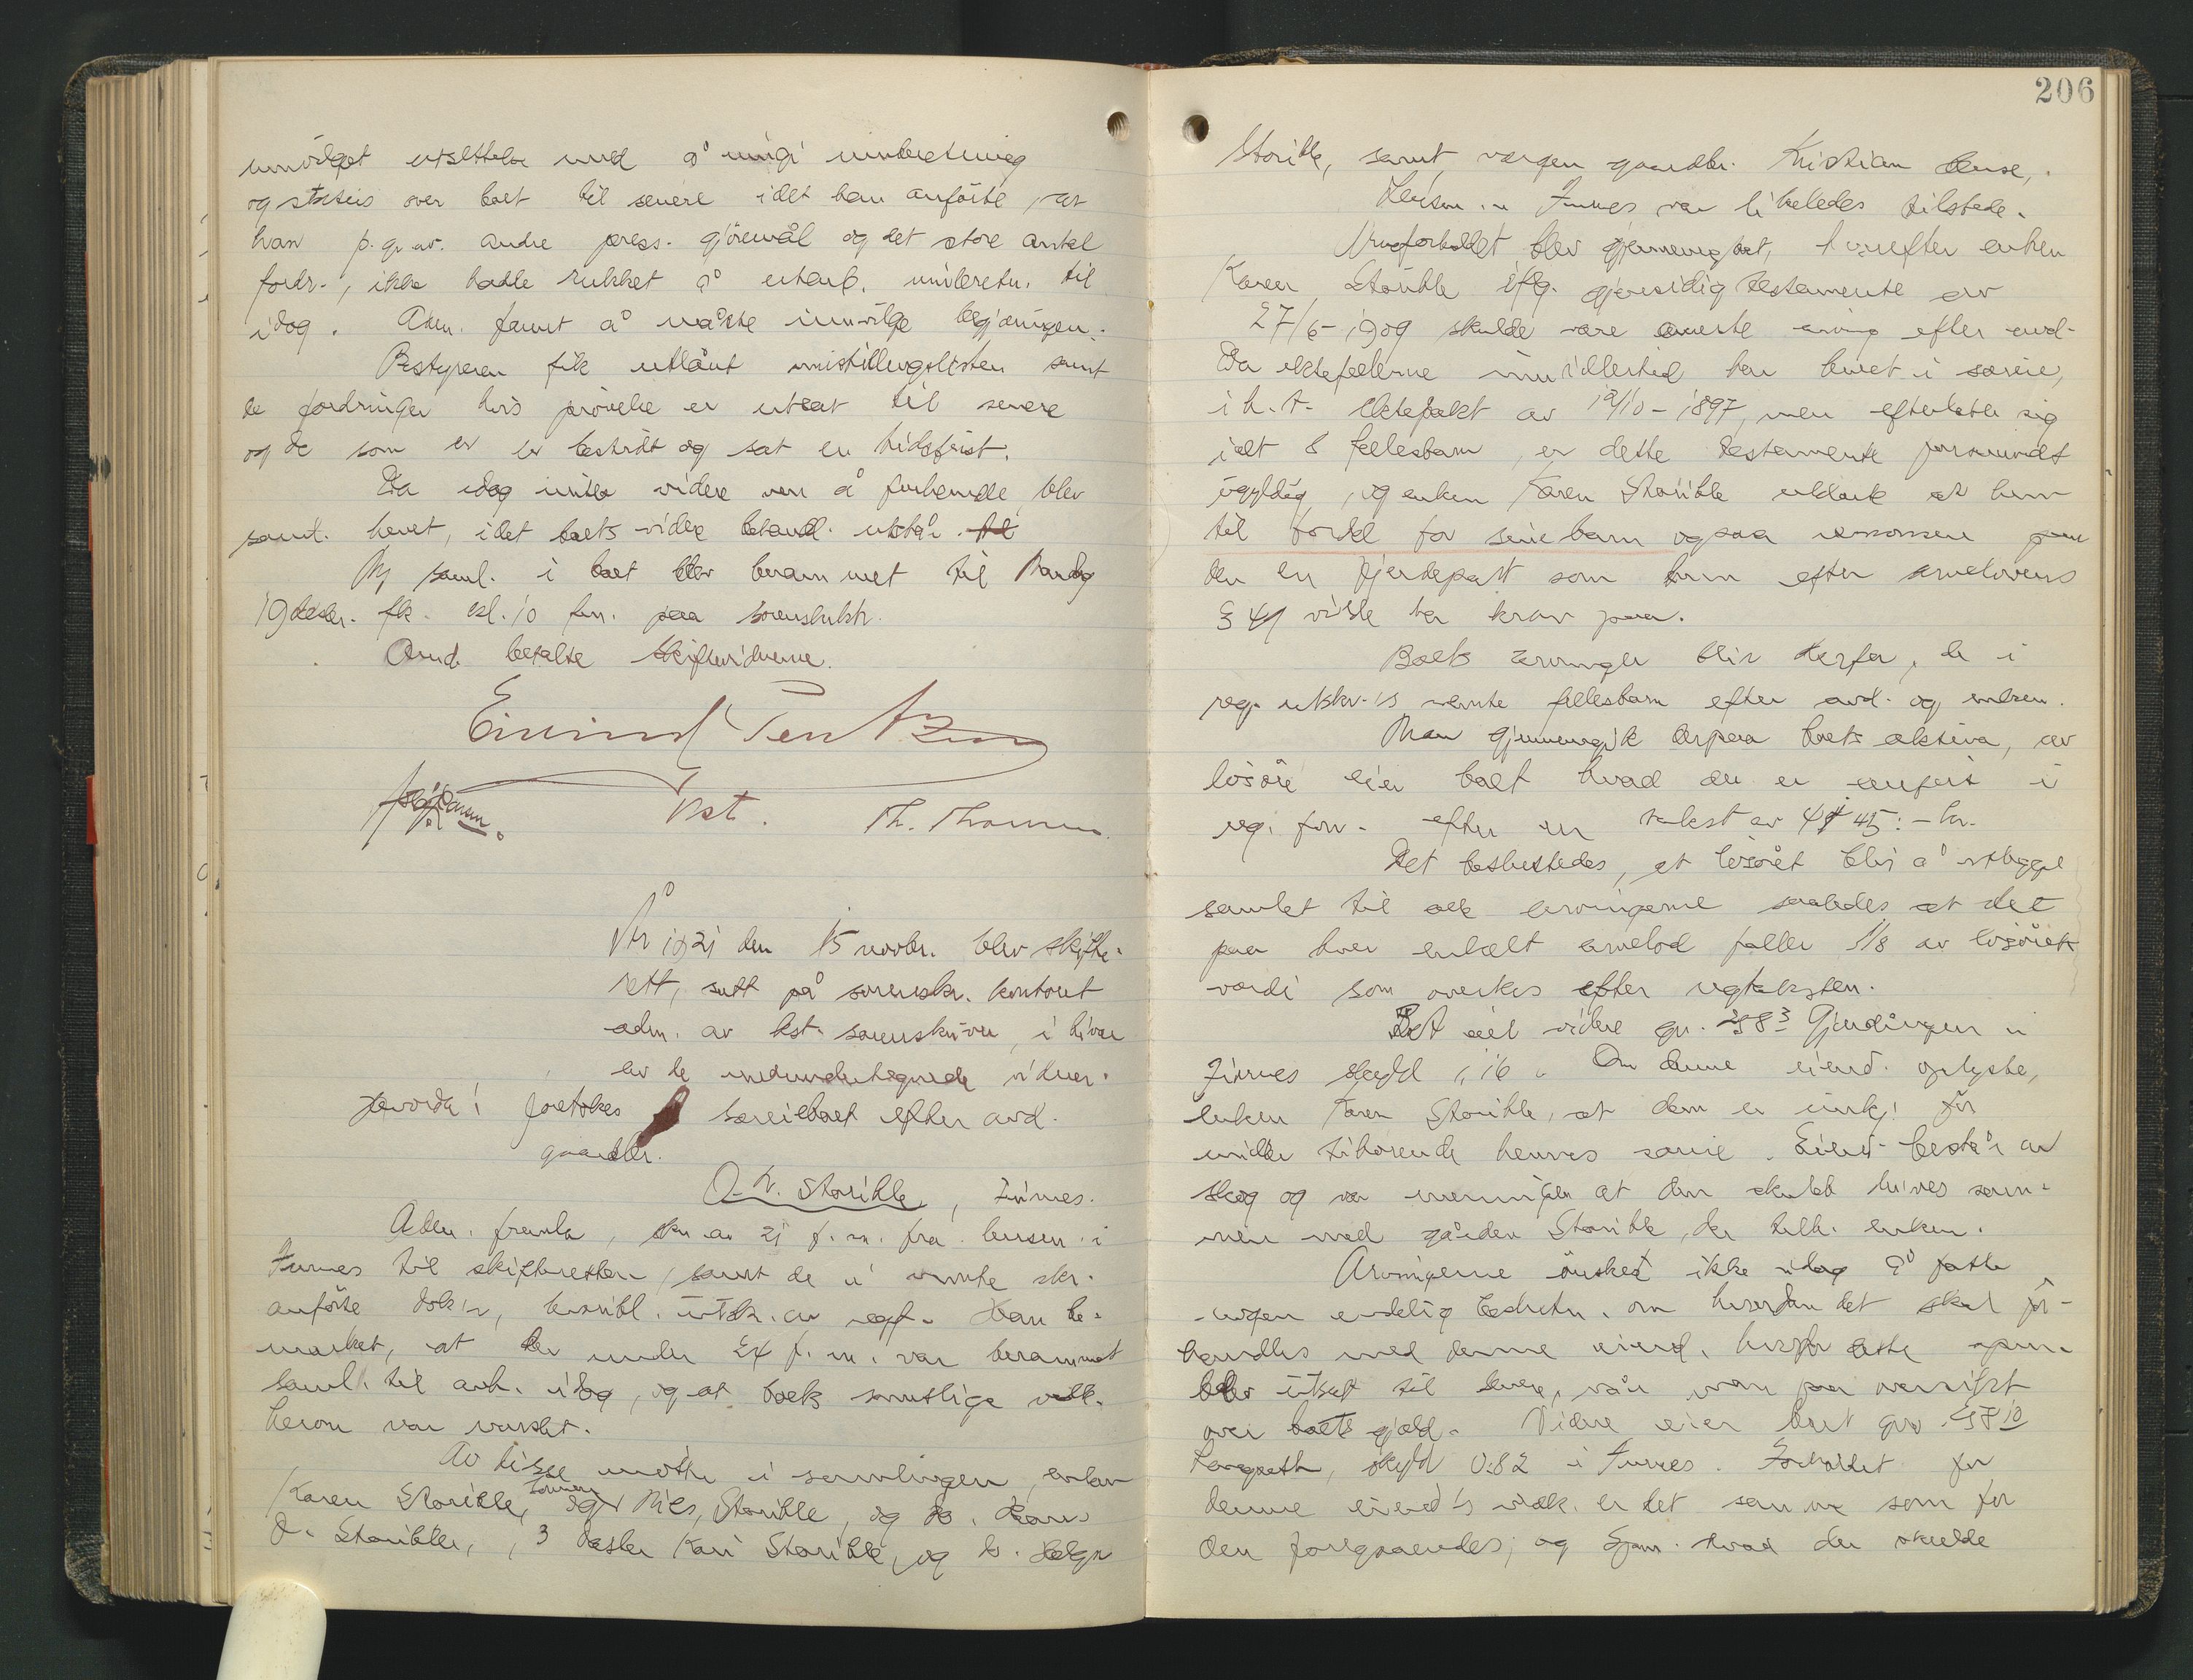 innvilget utsettelse med å inngi innberetning
og status over boet til senere idet han anførte, at
han p. gr. av. andre press. gjöremål og det store antal
fordr., ikke hadde rukket å utarb. innberetn. til
idag. Adm. fannt å måtte innvilge begjæringen.
Bestyreren fik utlånt innstillingslisten samt
de fordringer hvis prövelse er utsat til senere
og de som er bestridt og sat en tidsfrist.
Da idag intet videre var å forhandle, blev
saml. hevet, idet boets videre behandl. utstår.
Ny saml. i boet blev berammet til Mandag
19 desbr. fk. kl. 10 fm. paa sorenskrktr.
Avd. betalte skiftevidnerne.
Eivind Pentzen
kst.
Th. Thomassen
År 1921 den 15 novbr. blev skifte-
rett, satt på sorenskr. kontoret
adm. av kst. sorenskriver, i nærvær
av de medundertegnede vidner.
Hvorda! foretokes særeieboet efter avd.
gaardbr.
O. N. Storihle, Furnes.
Adm. fremla, skr. av 21 f. m. fra lensm. i
Furnes til skifteretten, samt de i nevnte skr.
anförte dok'r, heribl. utskr. av regf. Han be-
merket, at der under 24 f. m. var berammet
saml. til avh. idag, og at boets samtlige vedk.
herom var varslet.
Av disse mötte i samlingen, enken
Karen Storihle, sönnene Nils Storihle, og do. Hans
O. Storihle, 3 datter Kari Storihle, og do. Helga
206
Storihle, samt vergen gaardbr. Kristian
Lensm. i Furnes var likeledes tilstede.
Arveforholdet blev gjennemgaat, hvorefter enken
Karen Storihle iflg. gjensidig testamente av
27/6-1909 skulde være eneste arving efter avd.
Da ektefellerne imidlertid har levet i særeie,
i h. t. ektepakt av 12/10-1897, men efterlater sig
ialt 8 fellesbarn, er dette testamente forsaavidt
ugyldig, og enken Karen Storihle uttalte at hun
til fordel for sine barn ogsaa renonserer paa
den en fjerdepart som hun efter arvelovens
§ 41 vilde ha krav paa.
Boets arvinger blir derfor, de i
reg. utskr.'s nevnte fellesbarn efter avd. og enken.
Man gjennemgik derpaa boets aktiva, av
lösöre eier boet hvad der er anført i
reg. forr. efter en takst av 4145:- kr.
Det besluttedes, at lösöret blir å utlægge
samlet til alle arvingerne saaledes at det
paa hver enkelt arvelod faller 1/8 av lösörets
værdi som ansettes efter regtaksten.
Boet eiet videre gn. 258³ Gjerdingen i
Furnes skyld 1,16. Om denne eiend. oplyste,
enken Karen Storihle, at den er innkj! for
midler tilhørende hennes særeie. Eiend. består av
skog og var meningen at den skulde drives sam-
men med gården Storihle, der tilh. enken.
Arvingerne ønsket ikke idag å fatte
nogen endelig beslutn. om hvordan det skal for-
handles med denne eiend. hvorfor dette spm.
blev utsat til senere, når man faar oversigt
over boets gjæld. Videre eier boet gnr 257¹⁰
skyld 0.82 i Furnes. Forholdet for
denne eiend's vedk. er det samme som for
den foregaaendes; og spm. hvad der skulde